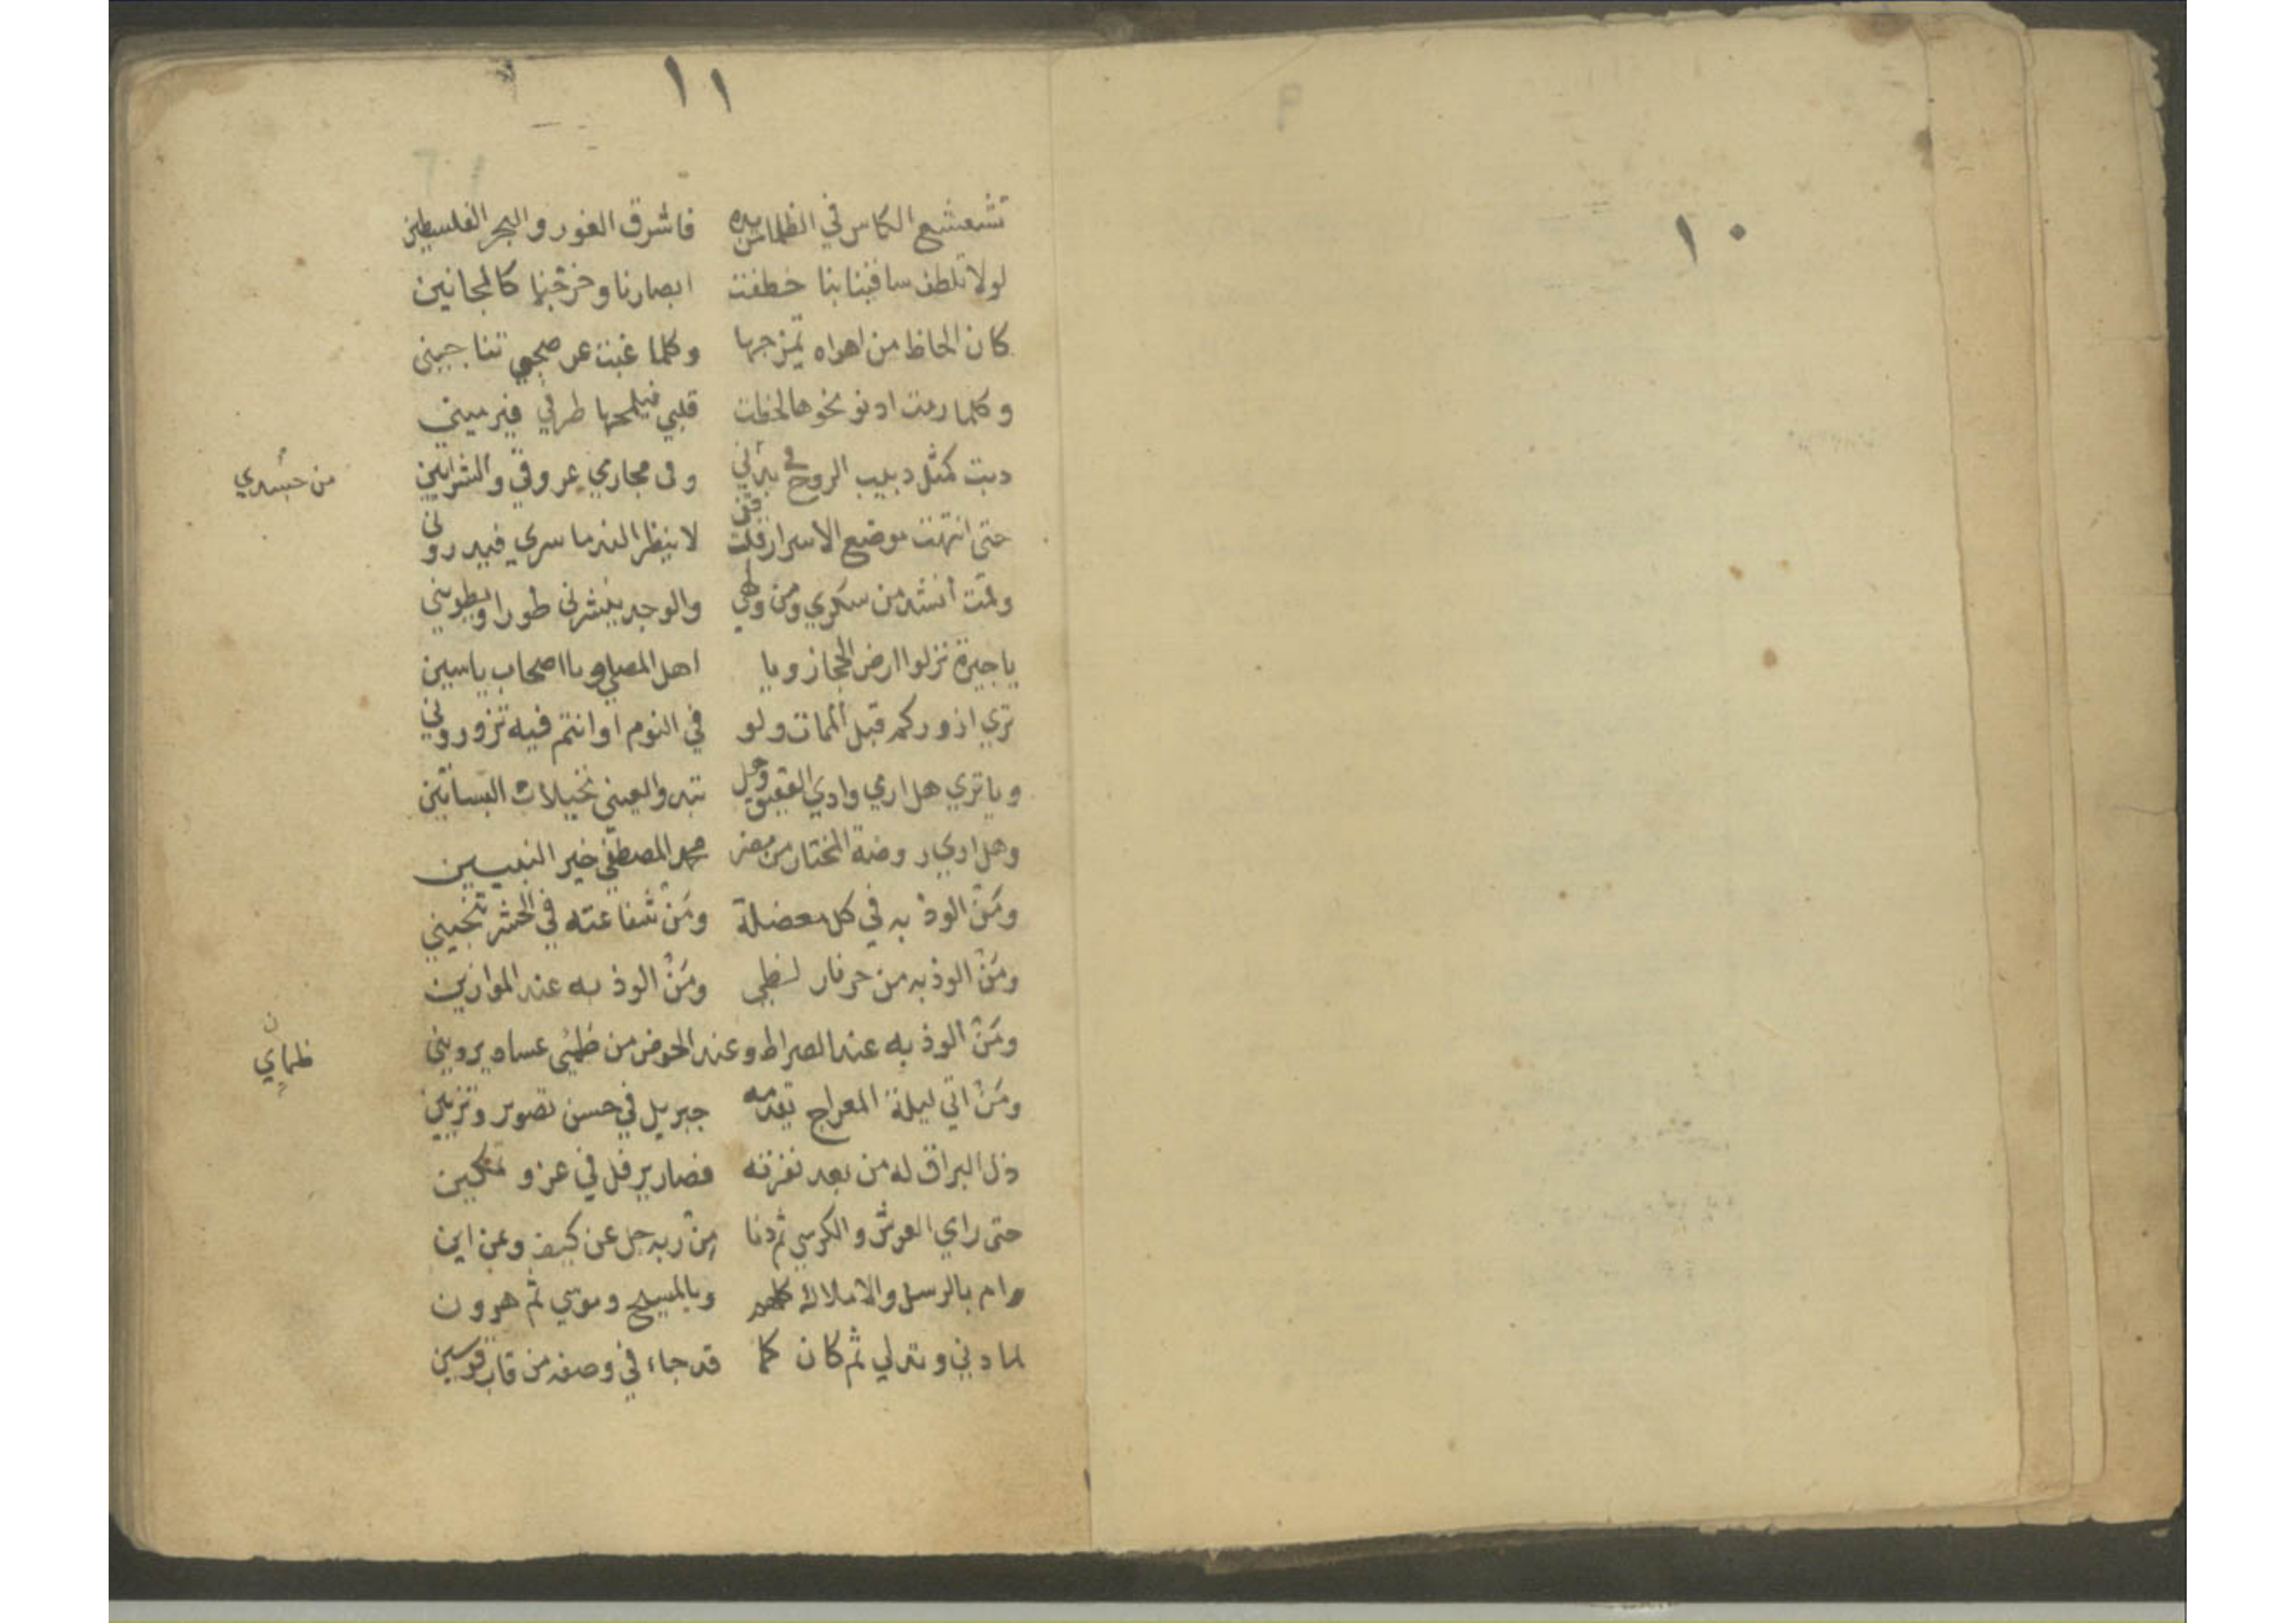 ١٠
١١
تشعشع الكاس في الظلما بيده فاشرق الغور والبحر الفلسطين
لولا تلطف ساقينا بنا خطفت ابصارنا وخرجنا كالمجانين
كان الحاظ من اهواه تمزجها وكلما غبت عن صحبي تناجيني
وكلما رمت ادنو نحوها لحظت قلبي فيلمحها طرفي فيرميني
دبت كمثل دبيب الروح في بدني وفي مجاري عروقي والشرايين
من جسدي
حتى انتهت موضع الاسرار قلت قف لا ينظر الغير ما سري فيدروني
وقمت أنشد من سكري ومن ولهي والوجد ينشرني طورا ويطويني
يا جيرة نزلوا ارض الحجاز ويا اهل المصلى ويا اصحاب ياسين
تري ازوركم قبل الممات ولو في النوم او انتم فيه تزوروني
ويا تري هل اري وادي العقيق وهل تبدو لعيني نخيلات البساتين
وهل اري روضة المختار من مضر محمد المصطفي خير النبيين
ومَنْ الوذ به في كل معضلة ومَنْ شفاعته في الحشر تنجيني
ومَنْ الوذ به من حر نار لظي ومَنْ الوذ به عند الموازين
ومَنْ الوذ به عند الصراط وعند الحوض من ظمئي عساه يرويني
ظماي ن
ومَنْ اتي ليلة المعراج يقدمه جبريل في حسن تصوير وتزيين
ذل البراق له من بعد نفرته فصار يرفل في عز وتمكين
حتى راي العرش والكرسي ثم دنا مِنْ ربه جل عن كيف وعن اين
وام بالرسل والاملاك كلهم وبالمسيح وموسي ثم هرون
لما دني وتدلي ثم كان كما قد جاء في وصفه من قاب قوسين